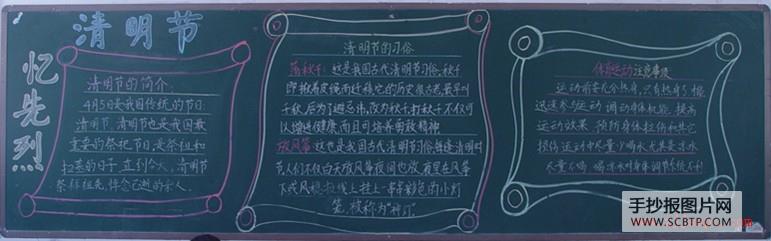 清明节
忆先烈
清明节的简介:
4月5日是我国传统的节日
清明节,清明节也是我国最
重要的祭祀节日,是祭祖和
扫墓的日子,直到今天,清明节
祭拜祖先,悼念已逝的亲人,
清明节的习俗
荡秋千:这是我国古代清明节习俗,秋千
即揪着皮绳而迁移,它的历史很古老,最早叫
千秋,后为了避忌讳,改为秋千,打秋千不仅可
以增进健康,而且可培养勇敢精神
放风筝:这也是我国古代清明节习俗,每逢清明时
节,人们不仅白天放风筝,夜间也放,夜里在风筝
下或风稳拉线上挂上一串串彩色的小灯
笼,被称为"神灯"
体育运动注意事项
运动前要充分热身,只有热身了
迅速参与运动,调动身体机能,提高
运动效果,预防身体拉伤和其它
损伤,运动中尽量少喝水尤其是冰水
尽量不喝
手抄报图片网
WWW.SCBTP.COM